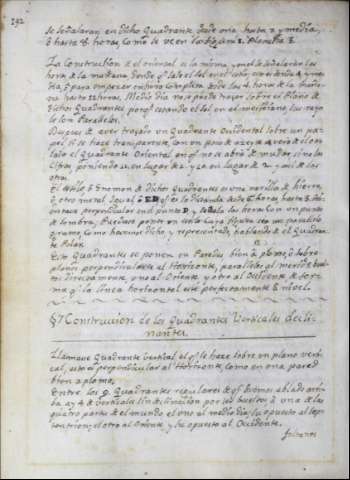 192
se señalaran en dicho Quadrante desde ora hasta y media,
ò hasta 8. horas, como se ve en la figura 2. Plancha 8.
La Construccion del oriental es la misma, y en el se señalaran las
horas de la mañana desde q.e sale el sol
hasta 12 horas. Medio dia no se puede hacer sobre el Plano de
dichos Quadrantes porq.e estando el sol en el meridiano, sus rayos
le son Paralelos.
Despues de aver trazado un Quadrante Occidental sobre un pa-
pel, si se hace transparente, con un poco de azeyte, a verà de el otro
lado el Quadrante Oriental en q.e no se abrà de mudar, sino las
cifras poniendo 11. en lugar de 1. y 10. en lugar de 2. y asi de las
otras.
El stilo, ò Gnomon de dichos Quadrantes es una varilla de hierro,
ù otro metal igual à es la distancia de de 6. horas hasta 3. Asi-
enta se perpendicular en el punto D, y señala las horas con un punto
de sombra,
como havemos dicho, y representado, hablando de el Quadran-
te Polar.
Estos Quadrantes se ponen en Paredes bien à plomo, ò sobre
planos perpendiculares al Horizonte, paralelos al meridiano
directamente, uno al Oriente, y otro al Occidente de for-
ma q.e la linea horizontal estè perfectamente à nivel.
§7 Construccion de los Quadrantes Verticales decli-
nantes
Llamase Quadrante vertical el q.e se hace sobre un plano verti-
cal, esto es perpendicular al Horizonte, como en una pared
bien a plomo.
Entre los 9. Quadrantes regulares de q.e hemos ablado arri-
ba ay 4. verticales sin declinacion por ser bueltos à una de las
quatro partes de el mundo el uno al medio dia, su opuesto al sep-
tentrion; el otro al oriente, y su opuesto al Occidente.